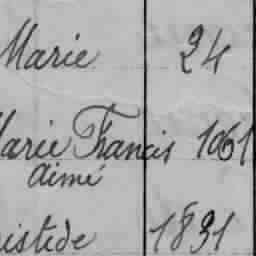 Marie 24
Marie Francis 1061
aimé
istede 1891